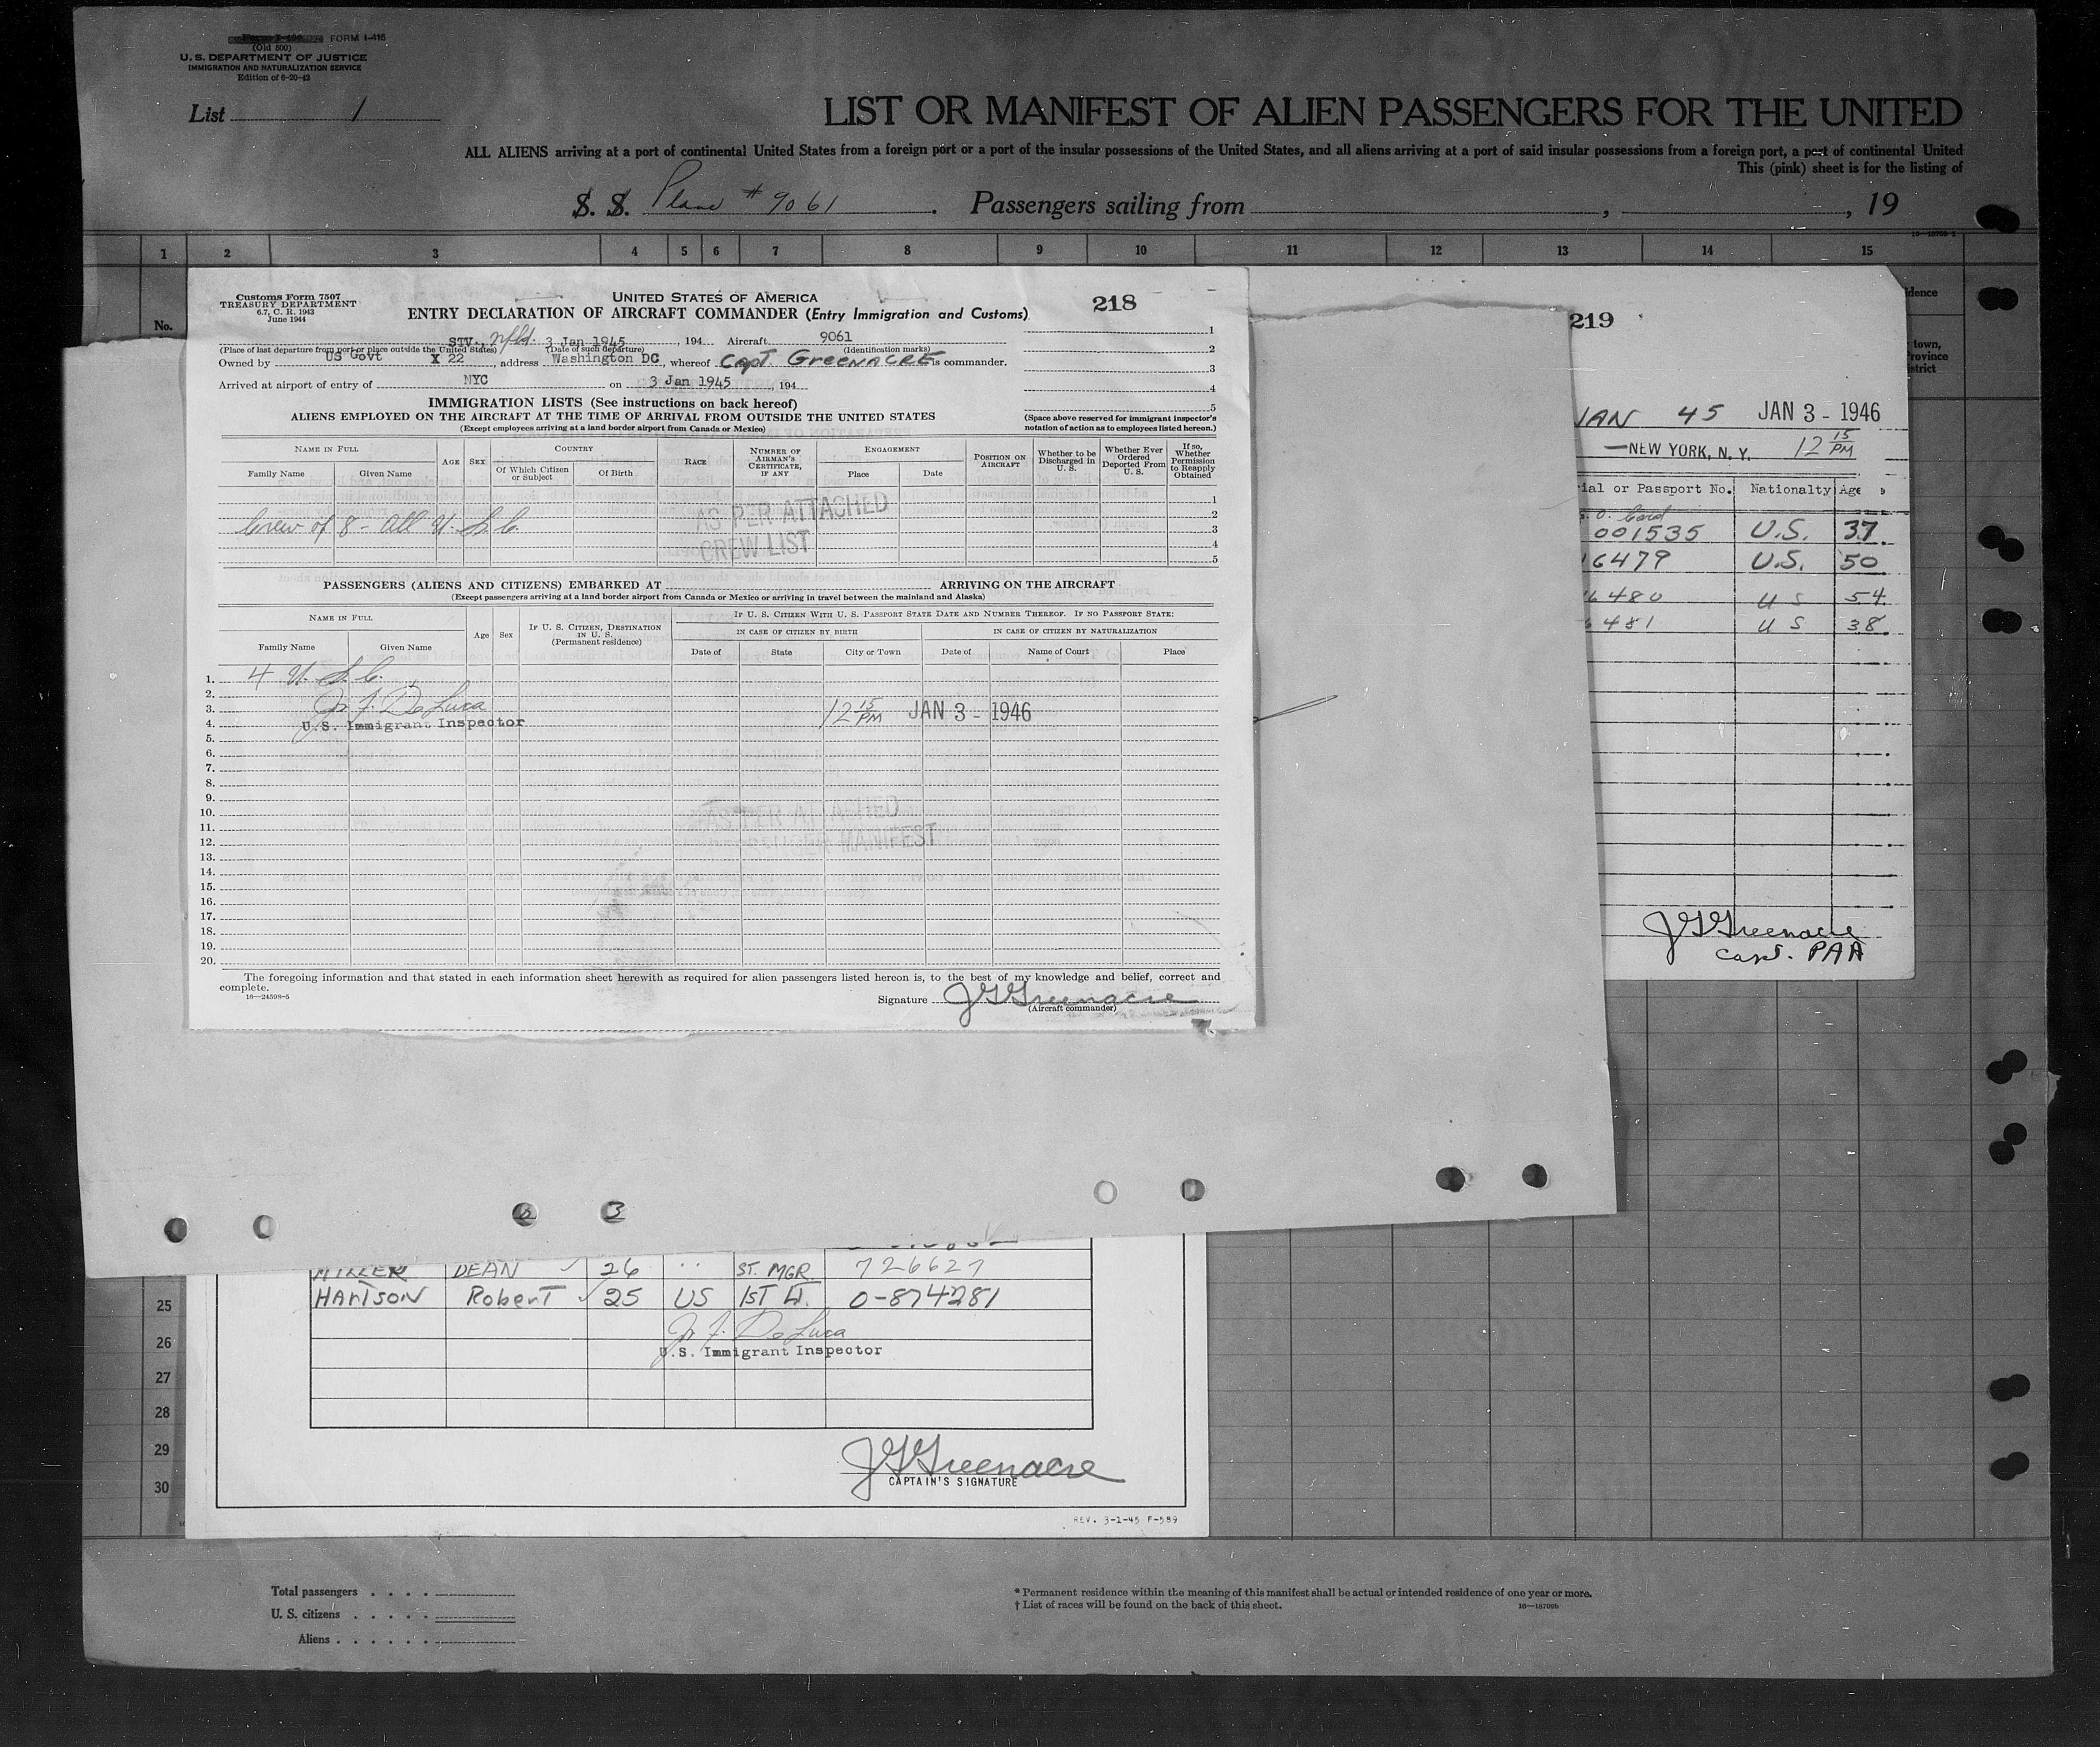 FORM I-415
(Old 500)
U. S. DEPARTMENT OF JUSTICE
IMMIGRATION AND NATURALIZATION SERVICE
Edition of 6-20-42
List 1
LIST OR MANIFEST OF ALIEN PASSENGERS FOR THE UNITED
ALL ALIENS arriving at a port of continental United States from a foreign port or a port of the insular possessions of the United States, and all aliens arriving at a port of said insular possessions from a foreign port, a port of continental United
This (pink) sheet is for the listing of
S. S. Plane # 9061. Passengers sailing from , , 19
1 2 3 4 5 6 7 8 9 10 11 12 13 14 15
No.
dence
town,
Province
strict
Customs Form 7507
TREASURY DEPARTMENT
6.7, C. R. 1943
June 1944
UNITED STATES OF AMERICA
ENTRY DECLARATION OF AIRCRAFT COMMANDER (Entry Immigration and Customs)
218
STV., Nfld. 3 Jan 1945, 194 Aircraft 9061
(Place of last departure from port or place outside the United States) (Date of such departure) (Identification marks)
Owned by US Govt X 22, address Washington DC, whereof Capt. GREENACRE is commander.
Arrived at airport of entry of NYC on 3 Jan 1945, 194
1
2
3
4
5
IMMIGRATION LISTS (See instructions on back hereof)
ALIENS EMPLOYED ON THE AIRCRAFT AT THE TIME OF ARRIVAL FROM OUTSIDE THE UNITED STATES
(Except employees arriving at a land border airport from Canada or Mexico)
(Space above reserved for immigrant inspector's
notation of action as to employees listed hereon.)
NAME IN FULL
Family Name Given Name
AGE SEX
COUNTRY
Of Which Citizen or Subject Of Birth
RACE
NUMBER OF AIRMAN'S CERTIFICATE, IF ANY
ENGAGEMENT
Place Date
POSITION ON AIRCRAFT
Whether to be Discharged in U. S.
Whether Ever Ordered Deported From U. S.
If so, Whether Permission to Reapply Obtained
Crew of 8 - All U. S. C.
AS PER ATTACHED
CREW LIST
1
2
3
4
5
PASSENGERS (ALIENS AND CITIZENS) EMBARKED AT ARRIVING ON THE AIRCRAFT
(Except passengers arriving at a land border airport from Canada or Mexico or arriving in travel between the mainland and Alaska)
NAME IN FULL
Family Name Given Name
Age Sex
IF U. S. CITIZEN, DESTINATION IN U. S.
(Permanent residence)
IF U. S. CITIZEN WITH U. S. PASSPORT STATE DATE AND NUMBER THEREOF. IF NO PASSPORT STATE:
IN CASE OF CITIZEN BY BIRTH
IN CASE OF CITIZEN BY NATURALIZATION
Date of State City or Town Date of Name of Court Place
1. 4 U. S. C.
2.
3. De Luca 12 15 PM JAN 3 - 1946
4. U.S. Immigrant Inspector
5.
6.
7.
8.
9.
10. AS PER ATTACHED
11.
12. MANIFEST
13.
14.
15.
16.
17.
18.
19.
20.
The foregoing information and that stated in each information sheet herewith as required for alien passengers listed hereon is, to the best of my knowledge and belief, correct and
complete.
16—24598-5
Signature JG Greenacre
(Aircraft commander)
219
JAN 45 JAN 3 - 1946
—NEW YORK, N. Y. 12 15 PM
ial or Passport No. Nationalty Age
Card
001535 U.S. 37.
16479 U.S. 50
6480 U S 54.
6481 U S 38.
JG Greenacre
Capt. PAA
3
MILLER DEAN 26 " ST. MGR. 726627
HARTSON RoberT 25 US 1ST Lt. 0-874281
De Luca
U.S. Immigrant Inspector
25
26
27
28
29
30
JG Greenacre
CAPTAIN'S SIGNATURE
REV. 3-1-45 F-589
Total passengers
U. S. citizens
Aliens
* Permanent residence within the meaning of this manifest shall be actual or intended residence of one year or more.
† List of races will be found on the back of this sheet.